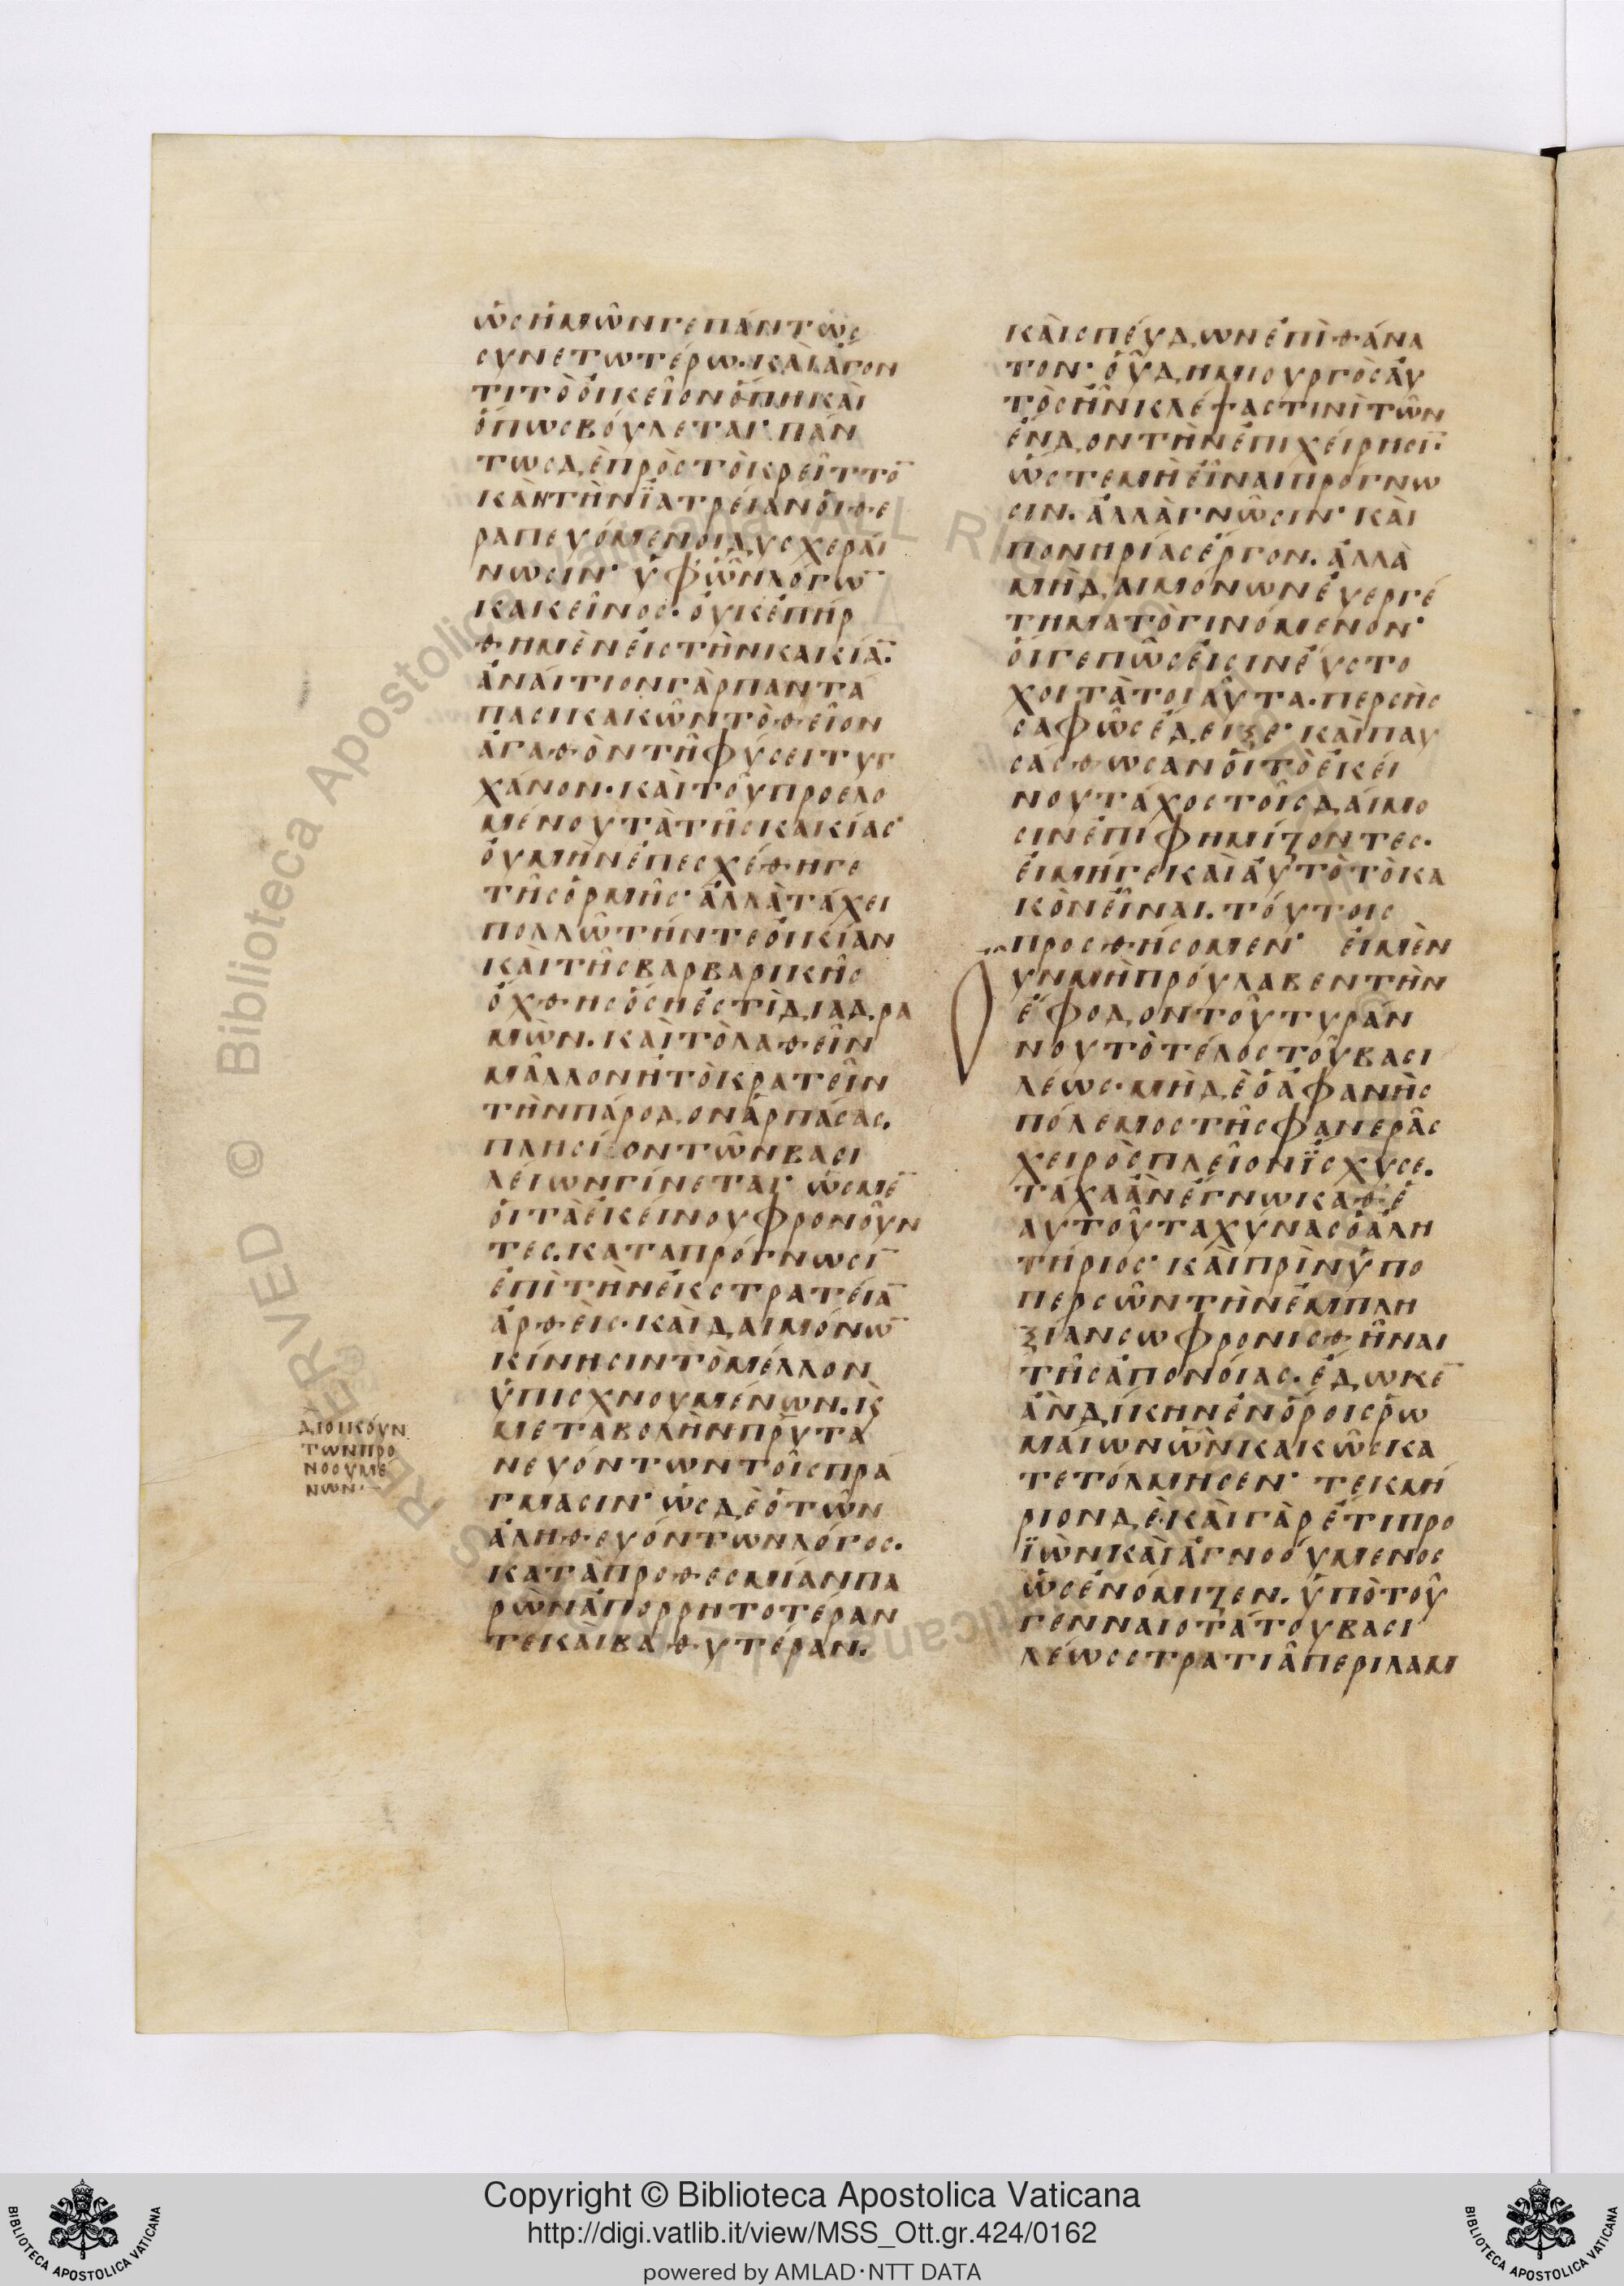 ὡς ἡμῶν γε πάντως
συνετωτέρω· καὶ ἄγον
τι τὸ οἰκεῖον ὅπη καὶ
ὅπως βούλεται· πάν
τως δὲ πρὸς τὸ κρεῖττο̅
κἂν τὴν ϊατρείαν οἱ θε
ραπευόμενοι δυσχεραί
νωσιν· ὑφ' ὧν λόγω̅
κακεῖνος· οὐκ ἐπήρ
θη μὲν εἰς τὴν κακία̅·
ἀναίτιον γὰρ παντά
πασι κακῶν τὸ θεῖον
ἀγαθὸν τῆ φύσει τυγ
χάνον· καὶ τοῦ προελο
μένου τὰ τῆς κακίας·
οὐ μὴν ἐπεσχέθη γε
τῆς ὁρμῆς· ἀλλὰ τάχει
πολλῶ τήν τε οἰκίαν
καὶ τῆς βαρβαρικῆς
ὄχθης ὅση ἐστὶ διαδρα
μὼν. καὶ τὸ λαθεῖν
μᾶλλον ἢ τὸ κρατεῖν
τὴν πάροδον ἁρπάσας.
πλησίον τῶν βασι
λείων γίνεται· ὡς με̅
οἱ τὰ ἐκείνου φρονοῦν
τες. κατα πρόγνωσι̅
ἐπὶ τὴν ἐκστρατεία̅
ἀρθεὶς· καὶ δαιμόνω̅
κίνησιν τὸ μέλλον
ὑπισχνουμένων. κ̀
μεταβολὴν πρυτα
νευόντων τοῖς πρά
γμασιν· ὡς δὲ ὁ τῶν
ἀληθευόντων λόγος.
κατὰ προθεσμίαν πα
ρὼν ἀπορρητοτέραν
τε καὶ βαθυτέραν.
διοικούν
των προ
νοουμέ
νων·
καὶ σπεύδων ἐπὶ θάνα
τον· οὗ δημιουργὸς αὐ
τὸς ἦν κλέψας τινὶ τῶν
ἔνδον τὴν ἐπιχείρησι̅·
ὥστε μὴ εἶναι πρόγνω
σιν. ἀλλὰ γνῶσιν· καὶ
πονηρίας ἔργον. ἀλλὰ
μὴ δαιμόνων ἐυεργέ
τημα τὸ γινόμενον·
οἵ γε πῶς εἰσιν ἔυστο
χοι τὰ τοιαῦτα. περσὴς
σαφῶς ἔδειξε· καὶ παυ
σάσθωσαν οἱ τὸ ἐκεί
νου τάχος τοῖς δαίμο
σιν ἐπιφημίζοντες.
εἰ μή γε καὶ αὐτὸ τὸ κα
κὸν εἶναι. τούτοις
προσθήσομεν· εἰ μὲν
υν μὴ προύλαβεν τὴν
ἔφοδον τοῦ τυράν
νου τὸ τέλος τοῦ βασι
λέως· μὴ δὲ ὁ ἀφανὴς
πόλεμος τῆς φανερᾶς
χειρὸς πλεῖον ϊσχυσε.
τάχα ἂν ἔγνω καθ' ἑ
αυτοῦ ταχύνας ὁ ἀλη
τήριος· καὶ πρὶν ὑπο
περσῶν τὴν ἐμπλη
ξίαν σωφρονισθῆναι
τῆς ἀπονοίας· ἔδωκε̅
ἂν δίκην ἐν ὅροις ῥω
μαίων ὧν κακῶς κα
τετόλμησεν· τεκμή
ριον δὲ· καὶ γὰρ ἔτι προ
ϊὼν καὶ ἀγνοούμενος
ὡς ἐνόμιζεν. ὑπὸ τοῦ
γενναιοτάτου βασι
λέως στρατιᾶ περιλαμ
Copyright © Biblioteca Apostolica Vaticana
http://digi.vatlib.it/view/MSS_Ott.gr.424/0162
powered by AMLAD·NTT DATA
BIBLIOTECA APOSTOLICA VATICANA
BIBLIOTECA APOSTOLICA VATICANA